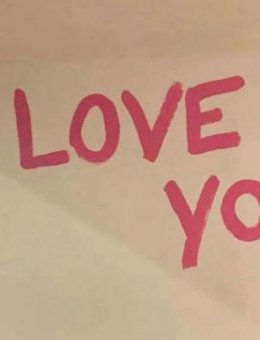 LOVE
YO